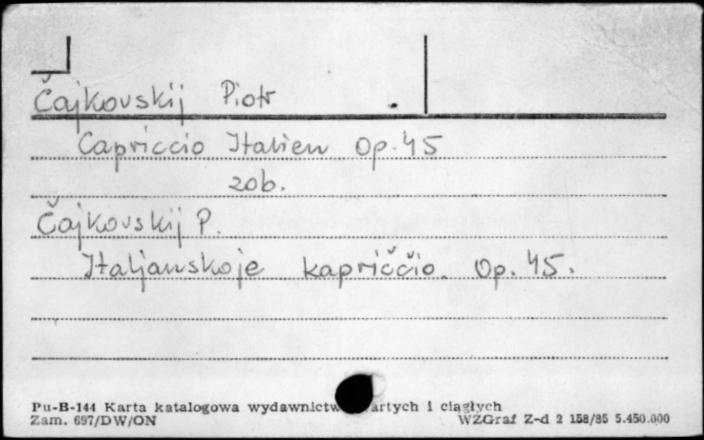 Čajkovskij Piotr
Capriccio Italien Op. 45
zob.
Čajkovskij P.
Italjanskoje kapriččio. Op. 45.
Pu-B-144 Karta katalogowa wydawnictw artych i ciągłych
Zam. 697/DW/ON WZGraf Z-d 2 158/85 5.450.000